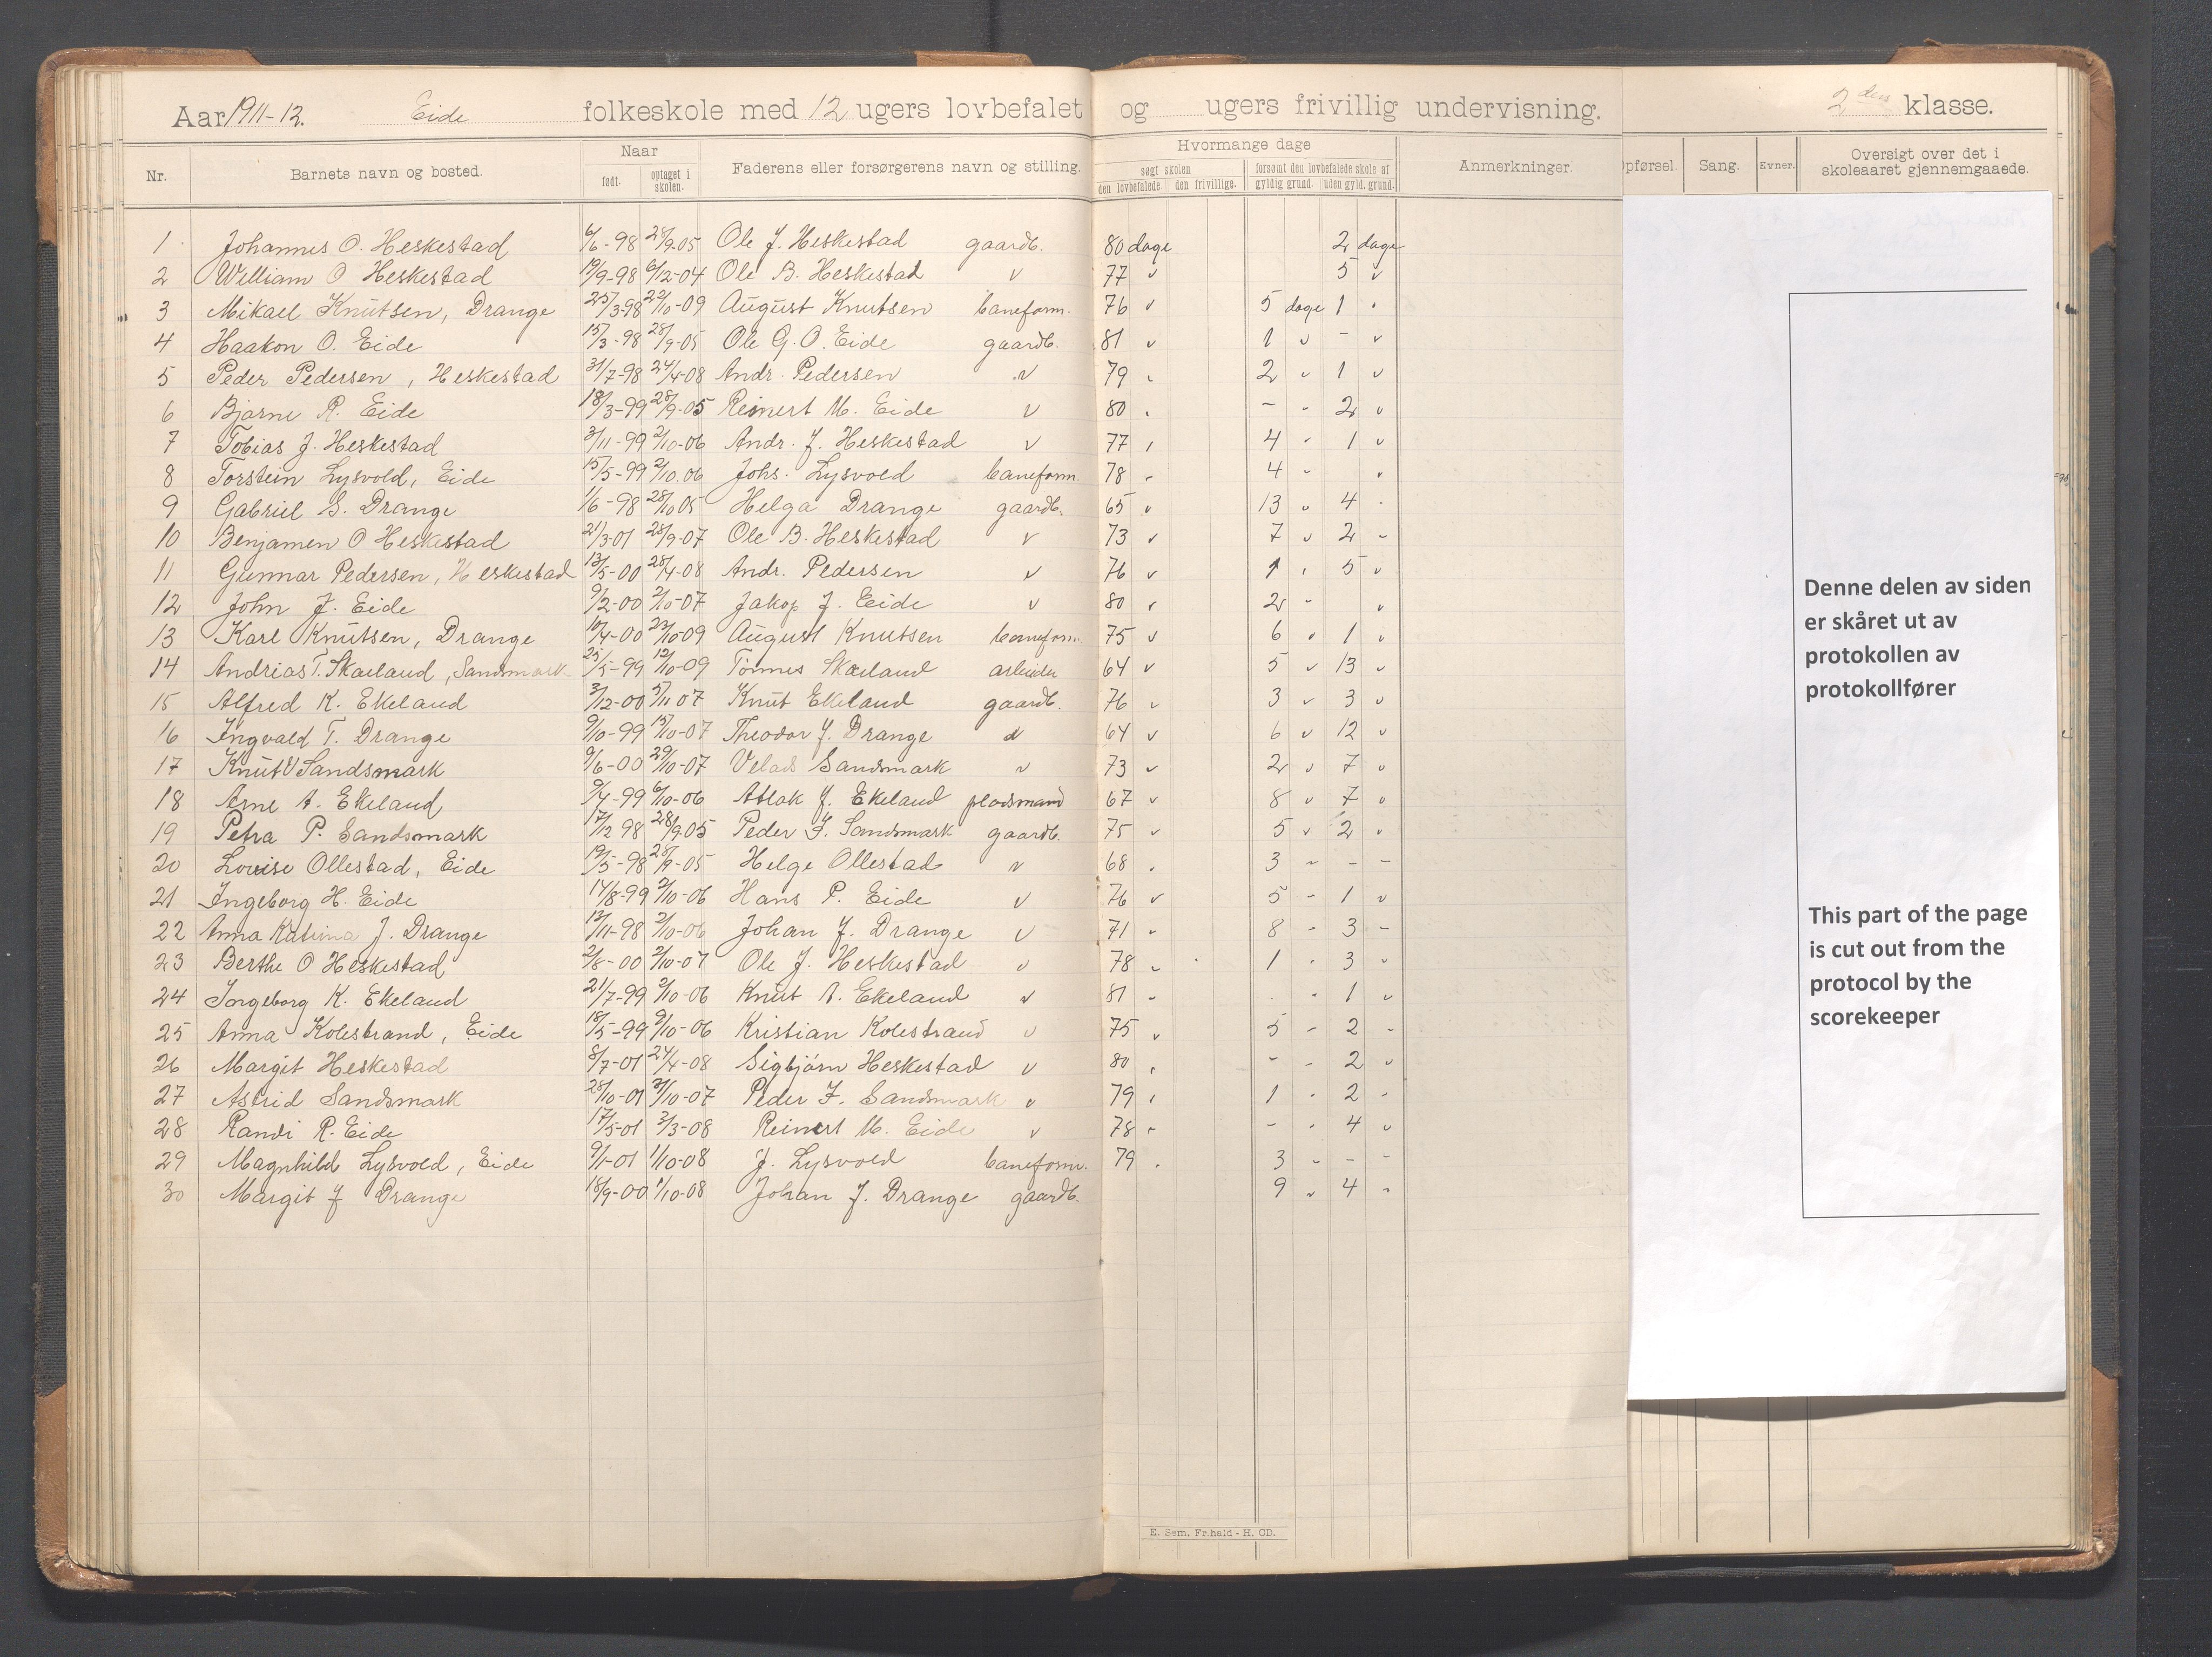 Aar 1911-12. Eide folkeskole med 12 ugers lovbefalet og ugers frivillig undervisning. 2den klasse.
Nr. Barnets navn og bosted. Naar født. optaget i skolen. Faderens eller forsørgerens navn og stilling. Hvormange dage søgt skolen den lovbefalede. den frivillige. forsømt den lovbefalede skole af gyldig grund. uden gyld. grund. Anmerkninger. Opførsel. Sang. Evner. Oversigt over det i skoleaaret gjennemgaaede.
1 Johannes O. Heskestad 6/6-98 28/9-05 Ole J. Heskestad gaardb. 80 dage 2 dage
2 William O Heskestad 19/9-98 6/12-04 Ole B. Heskestad " 77 " 5 "
3 Mikael Knutsen, Drange 25/3-98 22/10-09 August Knutsen baneform. 76 " 5 dage 1 "
4 Haakon O. Eide 15/3-98 28/9-05 Ole G. O. Eide gaardb. 81 " 1 " - "
5 Peder Pedersen, Heskestad 31/7-98 24/4-08 Andr. Pedersen " 79 " 2 " 1 "
6 Bjarne R. Eide 18/3-99 28/9-05 Reinert M. Eide " 80 " - " 2 "
7 Tobias J. Heskestad 3/11-99 2/10-06 Andr. J. Heskestad " 77 " 4 " 1 "
8 Torstein Lysvold, Eide 15/5-99 2/10.06 Johs. Lysvold baneform. 78 " 4 " "
9 Gabriel S. Drange 1/6-98 28/10 05 Helga Drange gaardb. 65 " 13 " 4 "
10 Benjamen O Heskestad 21/3-01 28/9-07 Ole B. Heskestad " 73 " 7 " 2 "
11 Gunnar Pedersen, Heskestad 13/5-00 28/4-08 Andr. Pedersen " 76 " 1 " 5 "
12 John J. Eide 9/2-00 2/10-07 Jakop J. Eide " 80 " 2 " "
13 Karl Knutsen, Drange 10/4-00 22/10-09 August Knutsen baneform. 75 " 6 " 1 "
14 Andrias T. Skailand, Sandsmark 25/5-99 12/10-09 Tønnes Skailand arbeider 64 " 5 " 13 "
15 Alfred K. Ekeland 3/12-00 5/11 07 Knut Ekeland gaardb. 76 " 3 " 3 "
16 Ingvald T. Drange 9/10-99 15/10-07 Theodor J. Drange " 64 " 6 " 12 "
17 Knut V Sandsmark 9/6-00 29/10-07 Velas Sandsmark " 73 " 2 " 7 "
18 Arne A. Ekeland 9/4-99 6/10-06 Atlak J. Ekeland pladsmand 67 " 8 " 7 "
19 Petra P. Sandsmark 17/12 98 28/9.05 Peder F. Sandsmark gaardb. 75 " 5 " 2 "
20 Louise Ollestad, Eide 19/5-98 28/9-05 Helge Ollestad " 68 " 3 " - -
21 Ingeborg H. Eide 14/8-99 2/10-06 Hans P. Eide " 76 " 5 " 1 "
22 Anna Katrina J. Drange 12/11-98 2/10-06 Johan J. Drange " 71 " 8 " 3 "
23 Berthe O Heskestad 2/8-00 2/10-07 Ole J. Heskestad " 78 " 1 " 3 "
24 Ingeborg K. Ekeland 21/7-99 2/10-06 Knut A. Ekeland " 81 " " 1 "
25 Anna Kolestrand, Eide 18/5-99 9/10-06 Kristian Kolestrand " 75 " 5 " 2 "
26 Margit Heskestad 8/7-01 24/4-08 Sigbjørn Heskestad " 80 " - " 2 "
27 Astrid Sandsmark 28/10-01 31/10-07 Peder F. Sandsmark " 79 " 1 " 2 "
28 Randi R. Eide 17/5-01 2/3-08 Reinert M. Eide " 78 " - " 4 "
29 Magnhild Lysvold, Eide 9/1-01 1/10-08 J. Lysvold baneform. 79 " 3 " - -
30 Margit J Drange 18/9-00 1/10-08 Johan J. Drange gaardb. 9 " 4 "
Denne delen av siden
er skåret ut av
protokollen av
protokollfører
This part of the page
is cut out from the
protocol by the
scorekeeper
E. Sem. Fr.hald - H. CD.